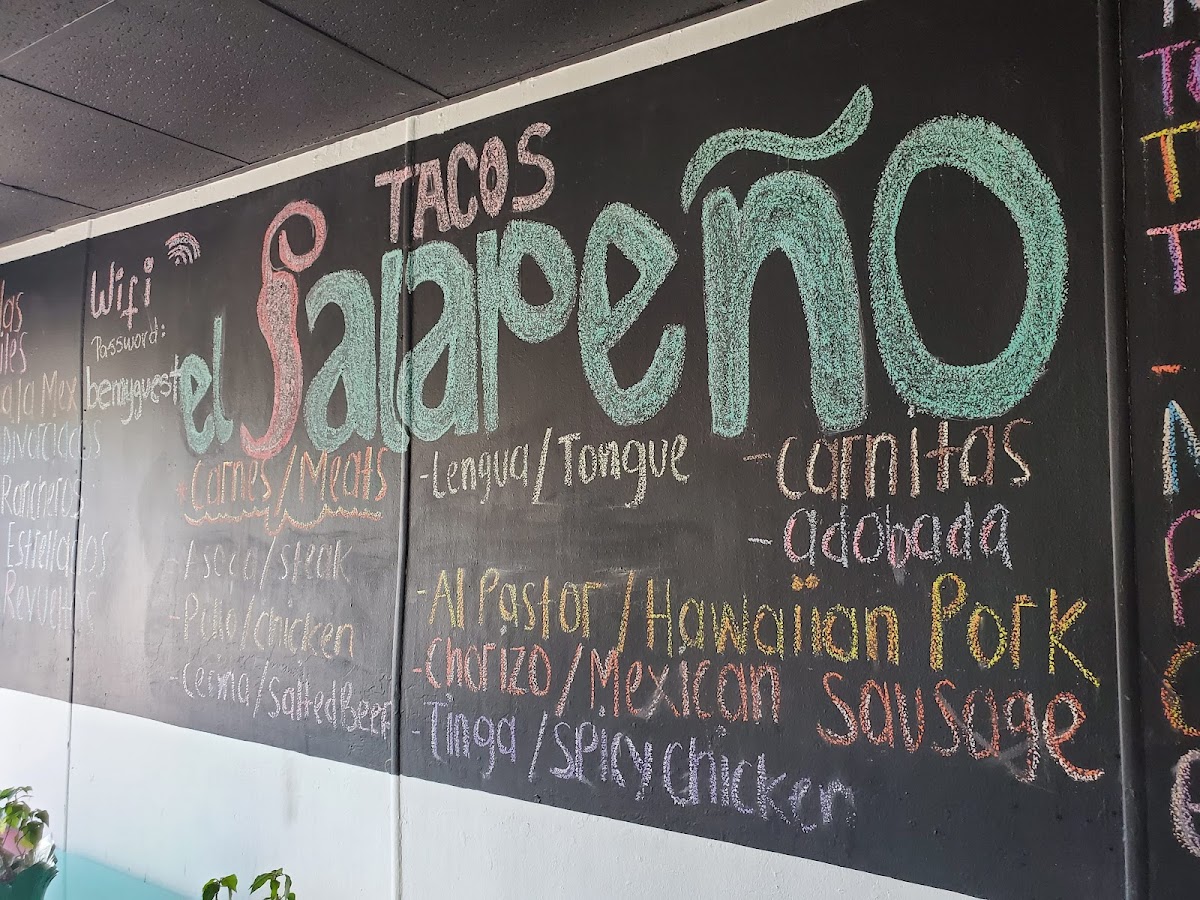 Wifi
Password:
bennyguest
TACOS
el Jalapeño
Carnes/Meats
/steak
-Pollo/chicken
-Cecina/salted Beef
-Lengua/Tongue
-Al Pastor/Hawaiian Pork
-Chorizo/Mexican sausage
-Tinga/spicy chicken
-carnitas
-adobada
a la Mex
Divorciados
Rancheros
Estrellados
Revueltos